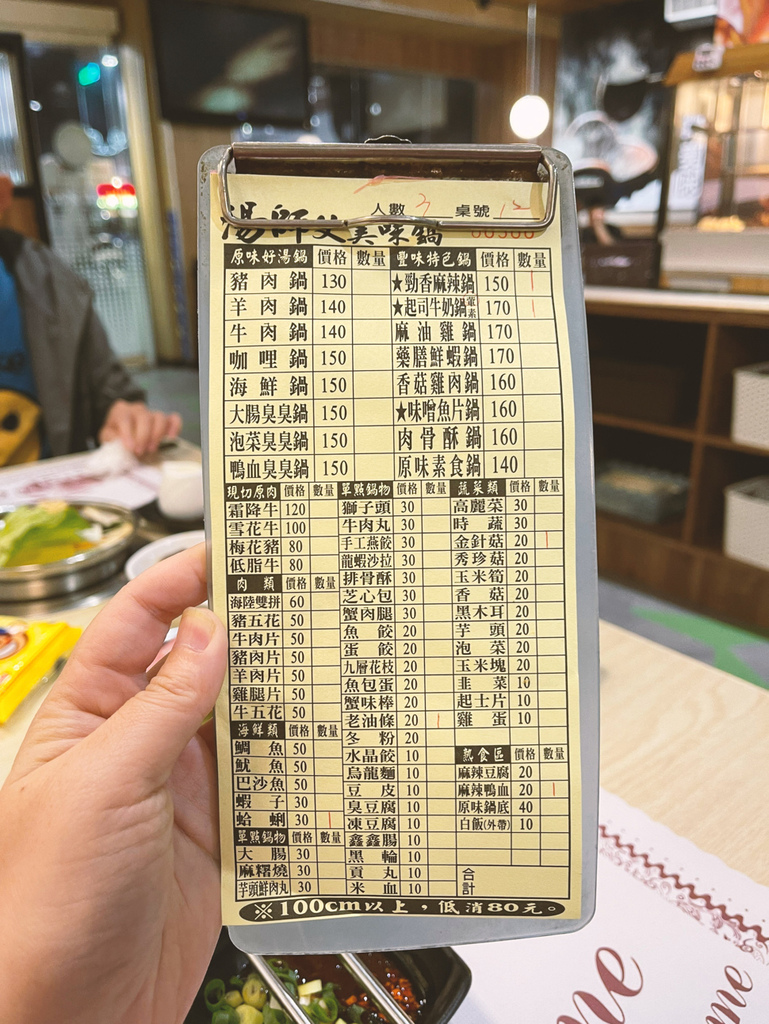 人數 桌號
湯師父美味鍋
原味好湯鍋 價格 數量 豐味特色鍋 價格 數量
豬肉鍋 130 ★勁香麻辣鍋 150 1
羊肉鍋 140 ★起司牛奶鍋 葷素 170 1
牛肉鍋 140 麻油雞鍋 170
咖哩鍋 150 藥膳鮮蝦鍋 170
海鮮鍋 150 香菇雞肉鍋 160
大腸臭臭鍋 150 ★味噌魚片鍋 160
泡菜臭臭鍋 150 肉骨酥鍋 160
鴨血臭臭鍋 150 原味素食鍋 140
現切原肉 價格 數量 單點鍋物 價格 數量 蔬菜類 價格 數量
霜降牛 120 獅子頭 30 高麗菜 30
雪花牛 100 牛肉丸 30 時蔬 30
梅花豬 80 手工燕餃 30 金針菇 20 1
低脂牛 80 龍蝦沙拉 30 秀珍菇 20
肉類 價格 數量 排骨酥 30 玉米筍 20
海陸雙拼 60 芝心包 30 香菇 20
豬五花 50 蟹肉腿 30 黑木耳 20
牛肉片 50 魚餃 20 芋頭 20
豬肉片 50 蛋餃 20 泡菜 20
羊肉片 50 九層花枝 20 玉米塊 20
雞腿片 50 魚包蛋 20 韭菜 10
牛五花 50 蟹味棒 20 起士片 10
海鮮類 價格 數量 老油條 20 1 雞蛋 10
鯛魚 50 冬粉 20
魷魚 50 水晶餃 10 熟食區 價格 數量
巴沙魚 50 烏龍麵 10 麻辣豆腐 20
蝦子 30 豆皮 10 麻辣鴨血 20 1
蛤蜊 30 1 臭豆腐 10 原味鍋底 40
單點鍋物 價格 數量 凍豆腐 10 白飯(外帶) 10
大腸 30 鑫鑫腸 10
麻糬燒 30 黑輪 10
芋頭鮮肉丸 30 貢丸 10 合計
米血 10
※100cm以上，低消80元。
me
me